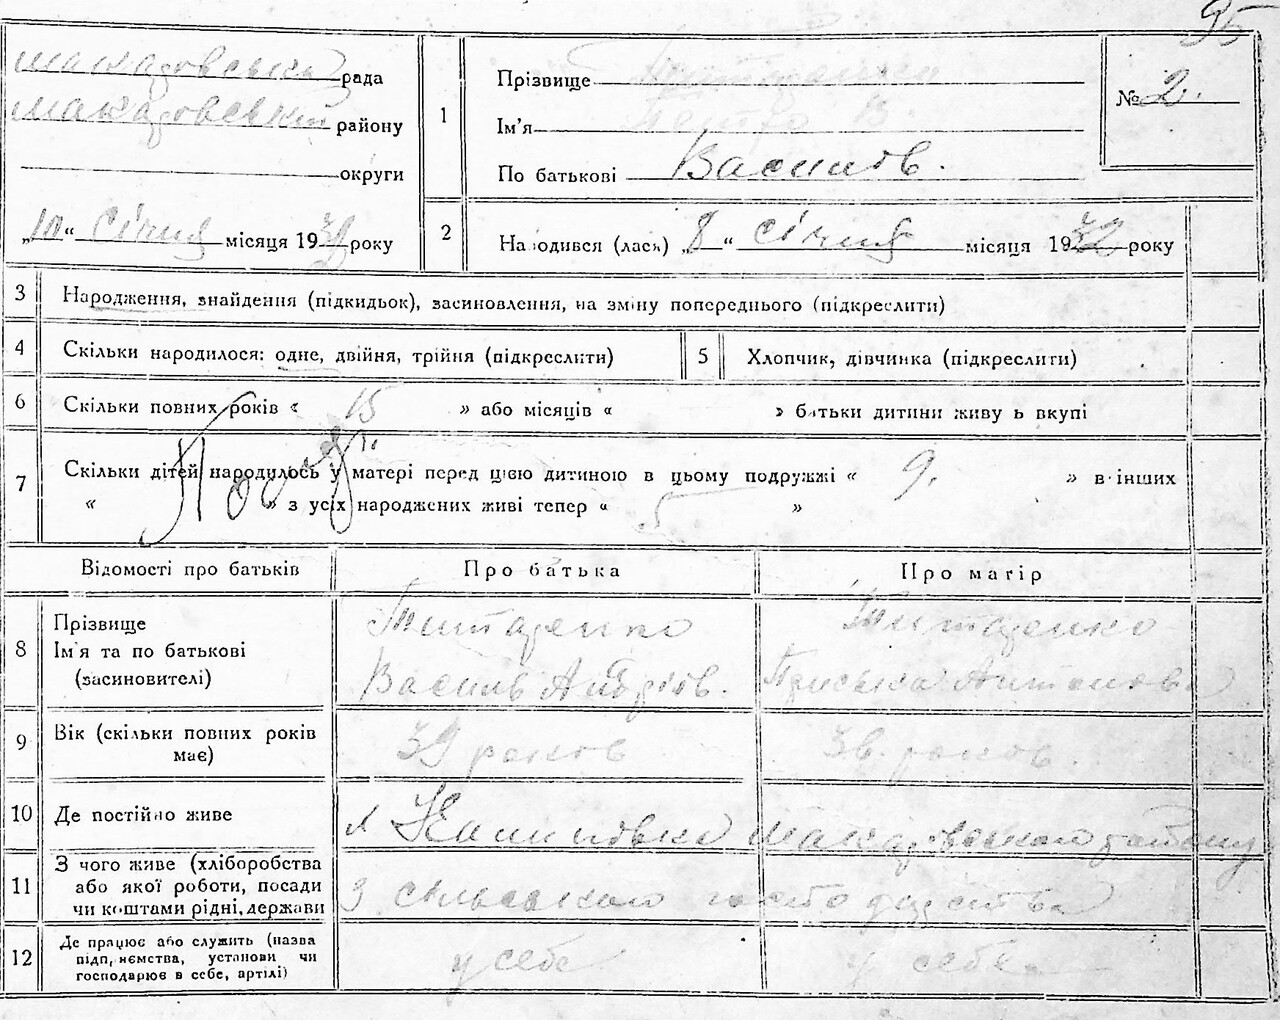 95
Макарівська рада
Макарівський району
округи
„10“ Січня місяця 1932 року
1
Прізвище Титаренко
Ім'я Петро В.
По батькові Василів.
№ 2.
2
На одився (лась) 8 “ січня місяця 1932 року
3 Народження, знайдення (підкидьок), засиновлення, на зміну попереднього (підкреслити)
4 Скільки народилося: одне, двійня, трійня (підкреслити)
5 Хлопчик, дівчинка (підкреслити)
6 Скільки повних років « 15 » або місяців « » батьки дитини живу ь вкупі
7 Скільки дітей народилось у матері перед цією дитиною в цьому подружжі « 9. » в інших
« » з усіх народжених живі тепер « 5 »
Відомості про батьків Про батька Про матір
8 Прізвище
Ім'я та по батькові
(засиновителі)
Титаренко
Василь Андріїв.
Титаренко
Приська Антонова
9 Вік (скільки повних років
має)
39 роков
36 роков.
10 Де постійно живе
Макаровского району
11 З чого живе (хліборобства
або якої роботи, посади
чи коштами рідні, держави
З сільського господарства
12 Де працює або служить (назва
підп, иємства, установи чи
господарює в себе, артілі)
у себе
у себе